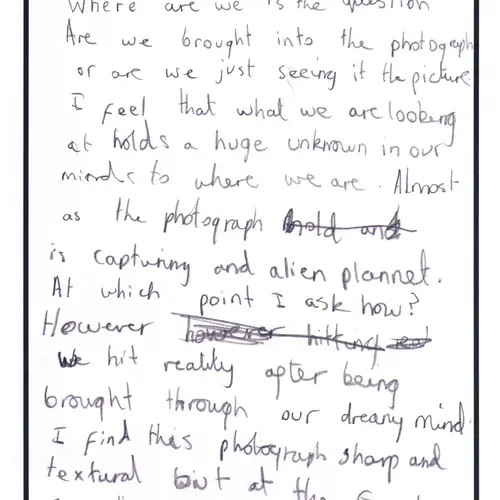 Where are we is the question
Are we brought into the photograph
or are we just seeing it the picture
I feel that what we are looking
at holds a huge unknown in our
minds to where we are. Almost
as the photograph hold and
is capturing and alien plannet.
At which point I ask how?
However however hitting real
we hit reality after being
brought through our dreamy mind.
I find this photograph sharp and
textural but at the